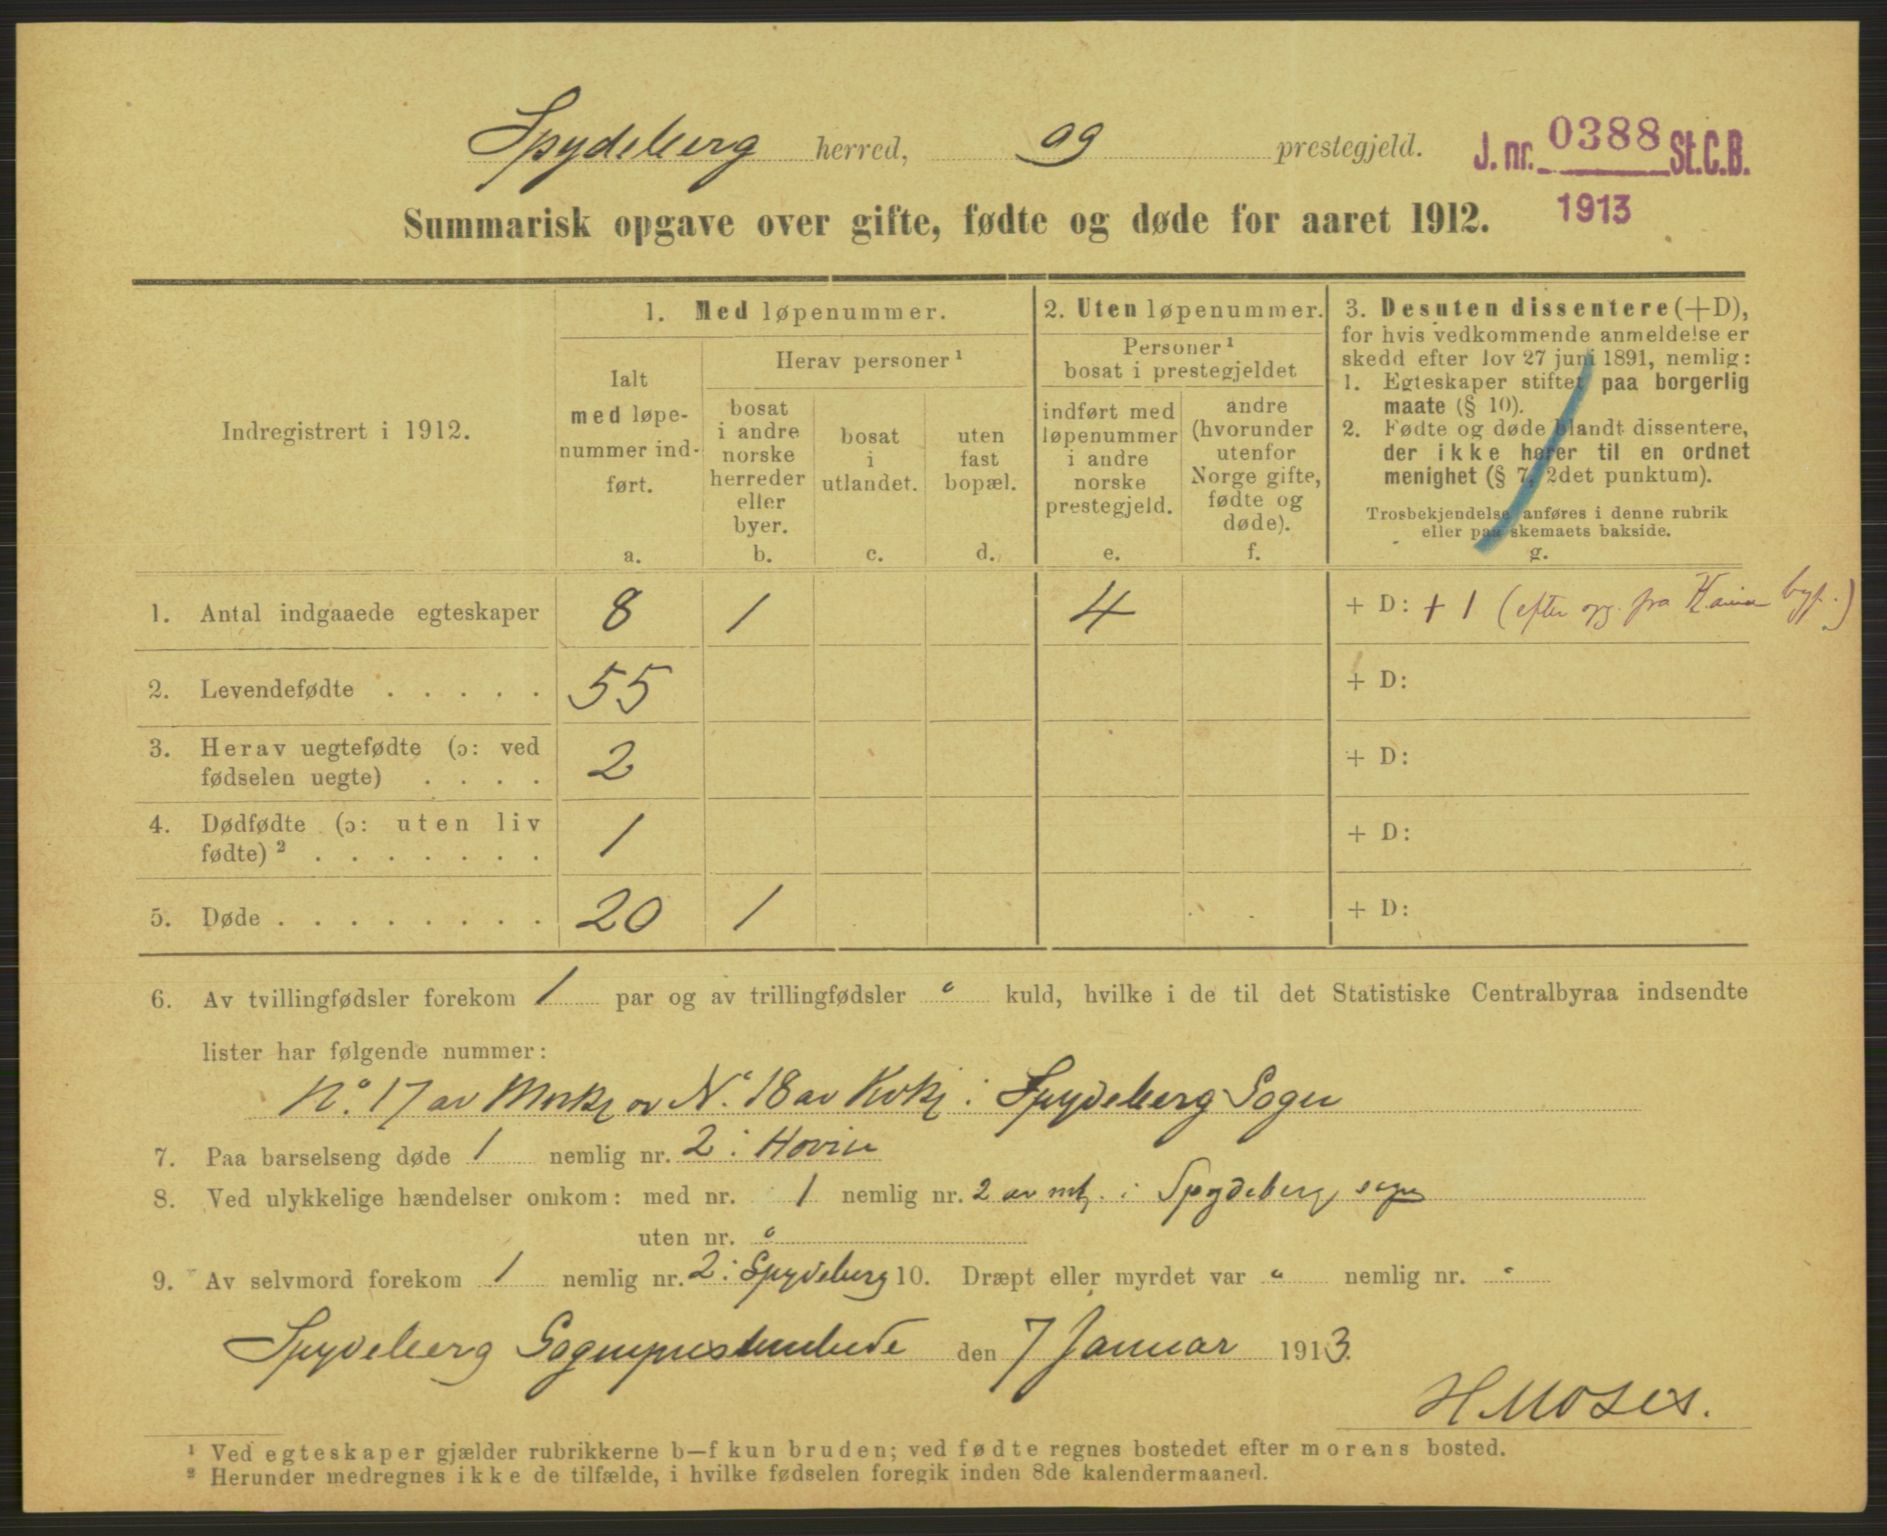 Spydeberg herred, og prestegjeld.
J. nr. 0388 St.C.B.
1913
Summarisk opgave over gifte, fødte og døde for aaret 1912.
Indregistrert i 1912.
1. Med løpenummer.
Ialt med løpe-
nummer ind-
ført.
a.
Herav personer ¹
bosat
i andre
norske
herreder
eller
byer.
b.
bosat
i
utlandet.
c.
uten
fast
bopæl.
d.
2. Uten løpenummer.
Personer ¹
bosat i prestegjeldet
indført med
løpenummer
i andre
norske
prestegjeld.
e.
andre
(hvorunder
utenfor
Norge gifte,
fødte og
døde).
f.
3. Desuten dissentere (+D),
for hvis vedkommende anmeldelse er
skedd efter lov 27 juni 1891, nemlig:
1. Egteskaper stiftet paa borgerlig
maate (§ 10).
2. Fødte og døde blandt dissentere,
der ikke hører til en ordnet
menighet (§ 7, 2det punktum).
Trosbekjendelse anføres i denne rubrik
eller paa skemaets bakside.
g.
1. Antal indgaaede egteskaper 8 1 4 + D: + 1 (efter og. fra byf.)
2. Levendefødte . . . . . 55 + D:
3. Herav uegtefødte (ɔ: ved
fødselen uegte) . . . . 2 + D:
4. Dødfødte (ɔ: uten liv
fødte) ² . . . . . . . 1 + D:
5. Døde . . . . . . . . 20 1 + D:
6. Av tvillingfødsler forekom 1 par og av trillingfødsler " kuld, hvilke i de til det Statistiske Centralbyraa indsendte
lister har følgende nummer:
No. 17 av Mnkj og No. 18 av Kvkj i Spydeberg Sogn
7. Paa barselseng døde 1 nemlig nr. 2 i Hovin
8. Ved ulykkelige hændelser omkom: med nr. 1 nemlig nr. 2 av mk. i Spydeberg sogn
uten nr. "
9. Av selvmord forekom 1 nemlig nr. 2 i Spydeberg 10. Dræpt eller myrdet var " nemlig nr. "
Spydeberg Sogneprestembede den 7 Januar 1913.
H Moses.
¹ Ved egteskaper gjælder rubrikkerne b—f kun bruden; ved fødte regnes bostedet efter morens bosted.
² Herunder medregnes ikke de tilfælde, i hvilke fødselen foregik inden 8de kalendermaaned.